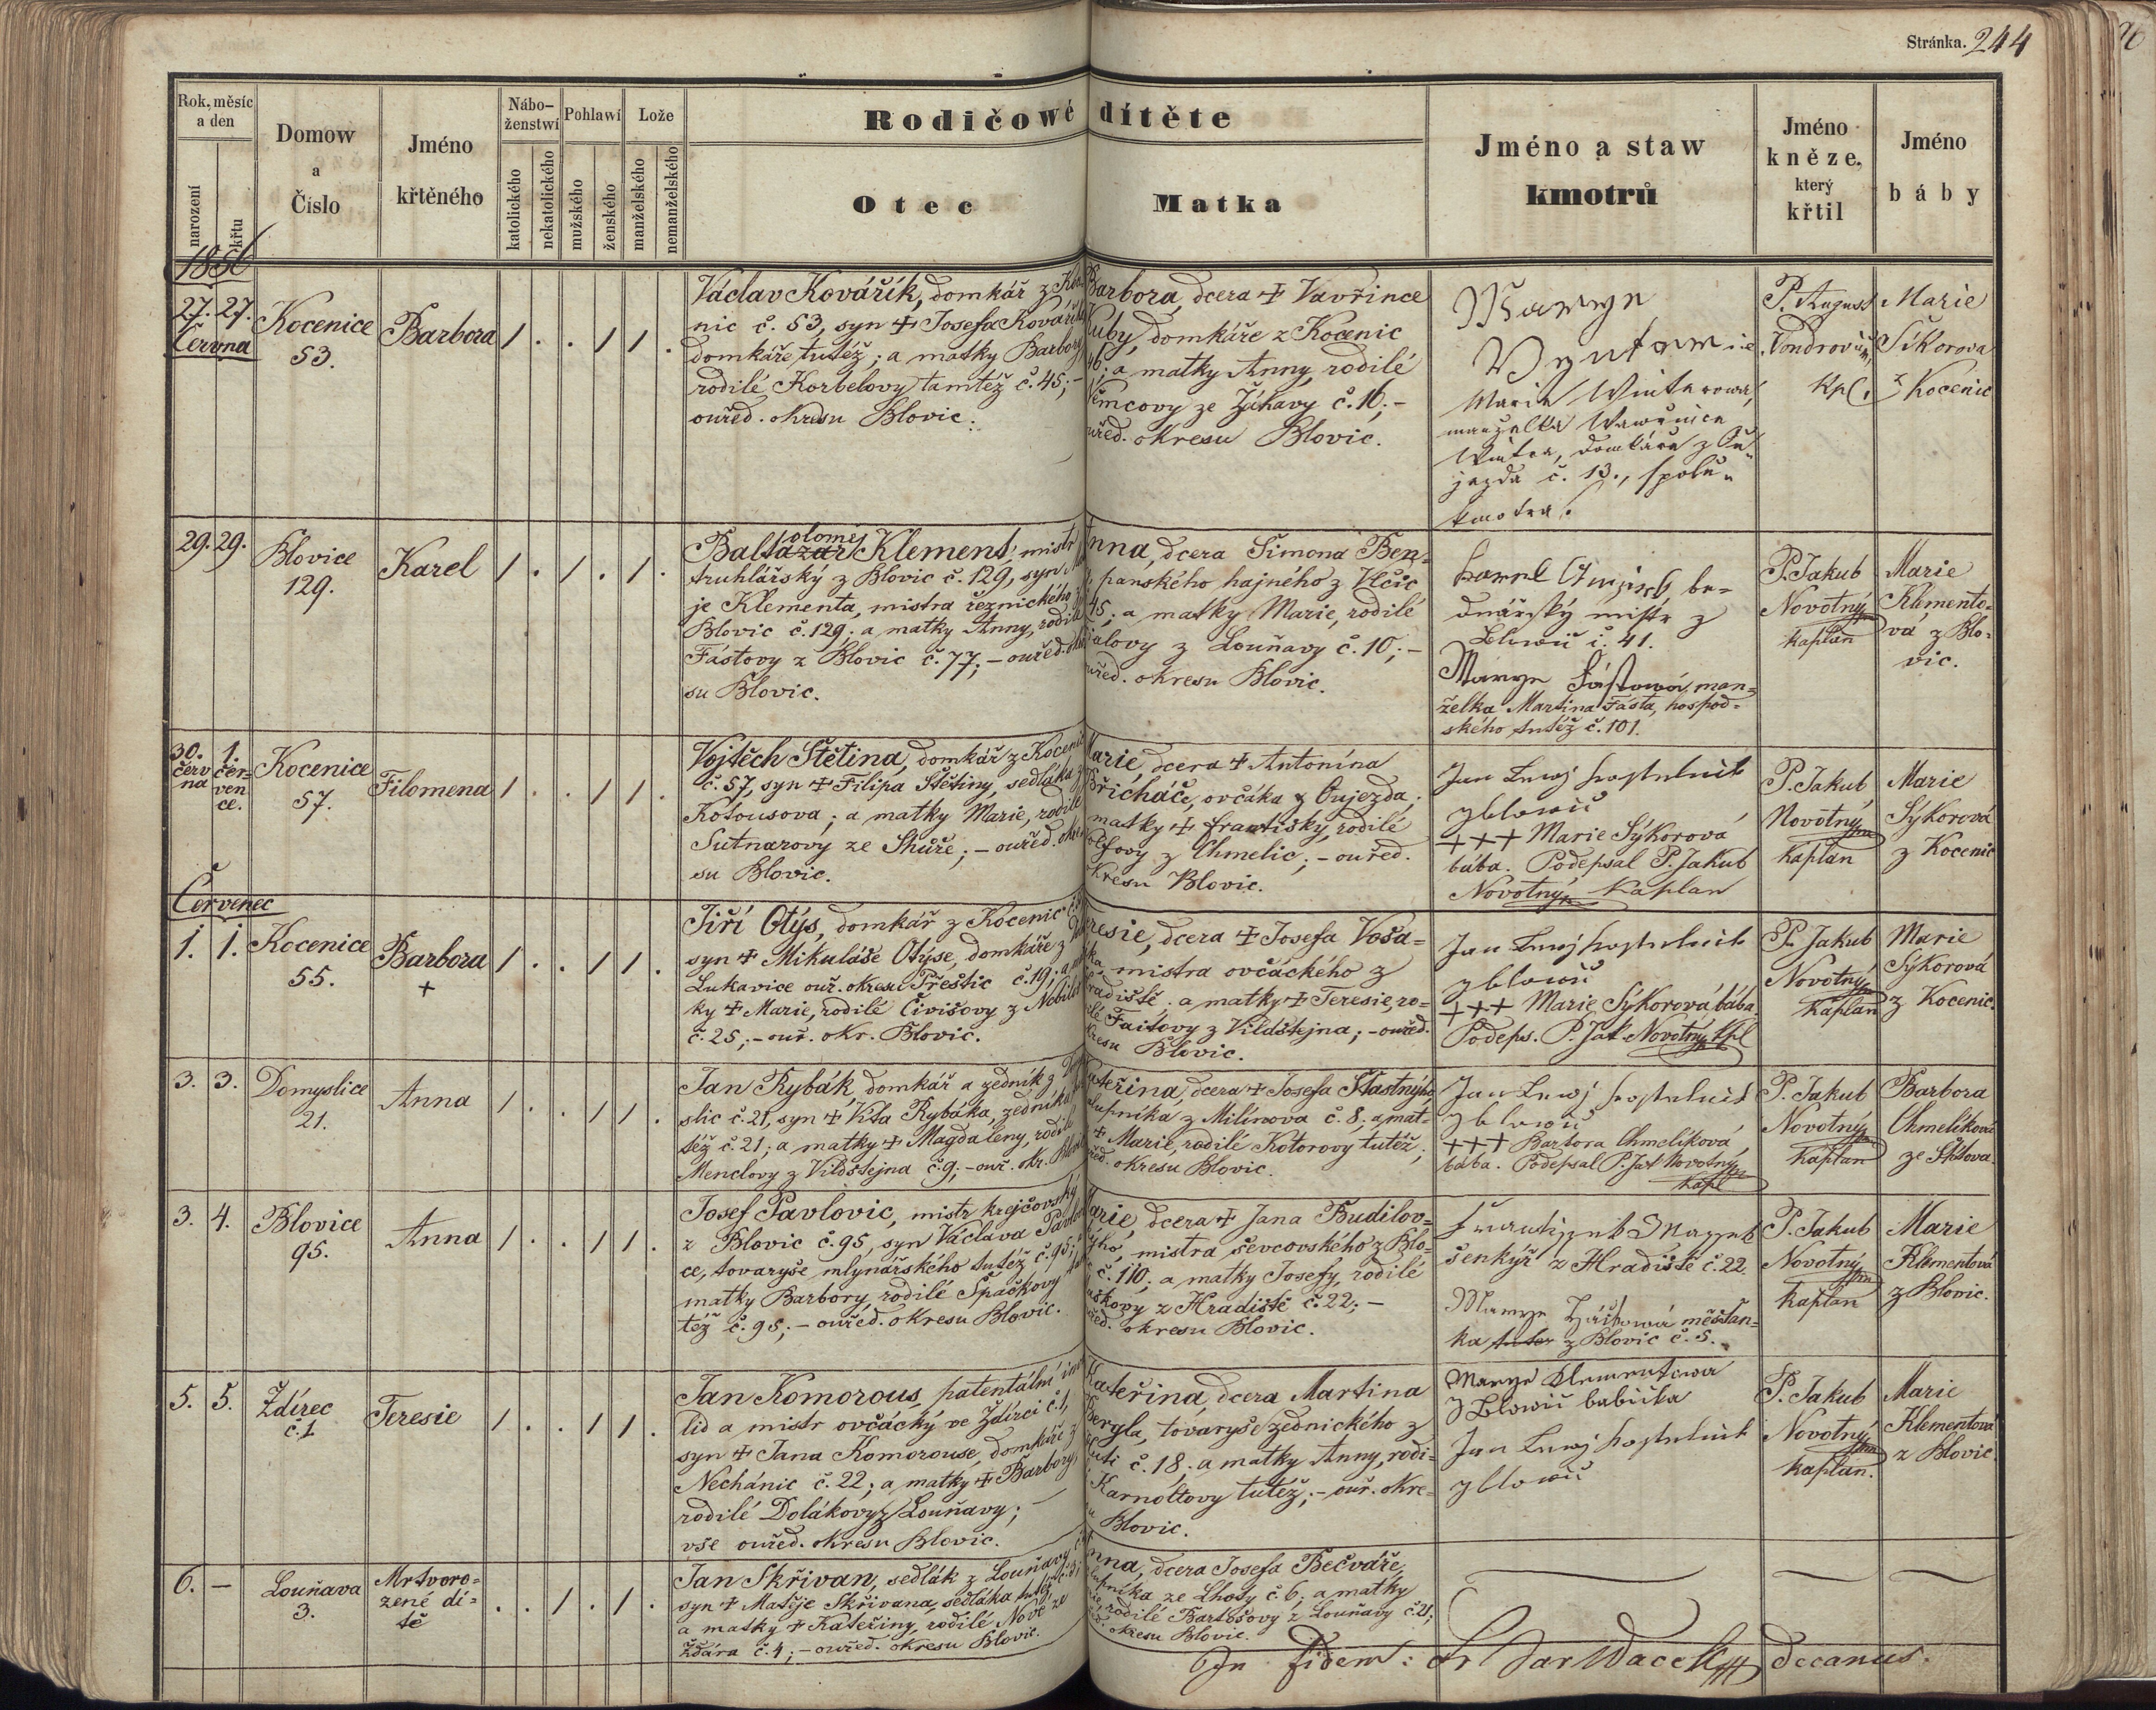 Stránka. 244
Rok, měsíc
a den
narození
křtu
Domow
a
Číslo
Jméno
křtěného
Nábo-
ženstwí
katolického
nekatolického
Pohlawí
mužského
ženského
Lože
manželského
nemanželského
Rodičowé dítěte
Otec
Matka
Jméno a staw
kmotrů
Jméno
kněze,
který
křtil
Jméno
báby
1856
27. 27.
Června
Kocenice
53.
Barbora
Václav Kovářík, domkář z Koce
nic č. 53, syn + Josefa Kovaříka
domkáře tutéž; a matky Barbory
rodilé Korbelovy tamtéž č. 45; –
ouřed. okresu Blovic.
Barbora, dcera + Vavřince
Kuby, domkáře z Kocenic
46; a matky Anny, rodilé
Němcovy ze Žákavy č. 16; –
ouřed. okresu Blovic.
Maria Winterowa,
manzelka Wawřince
Wintra, domkáře z Au-
jezda č. 13., spolu-
kmotra.
P. August
Vondrovic,
Kpl.
Marie
Síkorova
z Kocenic
29. 29.
Blovice
129.
Karel
olomej
Baltazar Klement, mistr
truhlářský z Blovic č. 129, syn Ma
je Klementa, mistra řeznického z
Blovic č. 129; a matky Anny, rodilé
Fástovy z Blovic č. 77; – ouřed. okre
su Blovic.
Anna, dcera Šimona Ben-
panského hajného z Vlčic
45; a matky Marie, rodilé
alovy z Louňavy č. 10; –
ouřed. okresu Blovic.
Karel be-
dnářský mistr z
Blowic č. 41.
Marye Fástowá, man-
želka Martina Fásta, hospod-
ského tutéž č. 101.
P. Jakub
Novotný
kaplan
Marie
Klemento-
vá z Blo-
vic.
30. 1.
červ čer-
na ven
ce.
Kocenice
57.
Filomena
Vojtěch Štětina, domkář z Kocenic
č. 57, syn + Filipa Štětiny, sedláka z
Kotousova; a matky Marie, rodilé
Sutnarovy ze Skuře; – ouřed. okre
su Blovic.
Marie, dcera + Antonína
Břicháče, ovčáka z Oujezda;
matky + Františky, rodilé
Volfovy z Chmelic; – ouřed.
okresu Blovic.
Jan Lang kostelník
z Blowic
+++ Marie Sýkorová
bába. Podepsal P. Jakub
Novotný Kaplan
P. Jakub
Novotný
Kaplan
Marie
Sýkorová
z Kocenic
Červenec
1. 1.
Kocenice
55.
Barbora
+
Jiří Otýs, domkář z Kocenic č. 55
syn + Mikuláše Otýse, domkáře z
Lukavice ouř. okresu Přeštic č. 19; a mat
ky + Marie, rodilé Čivišovy z Nebílov
č. 25; – ouř. okr. Blovic.
Teresie, dcera + Josefa Voša-
ka mistra ovčáckého z
Hradiště; a matky + Teresie, ro-
dilé Faitovy z Vildštejna; – ouřed.
okresu Blovic.
Jan Lang kostelník
z Blowic
+++ Marie Sýkorová, bába.
Podeps. P. Jak. Novotný, kpl
P. Jakub
Novotný
Kaplan
Marie
Sýkorová
z Kocenic.
3. 3.
Domyslice
21.
Anna
Jan Rybák, domkář a zedník z Domy
slic č. 21, syn + Víta Rybáka, zedníka tu
též č. 21; a matky + Magdaleny, rodilé
Menclovy z Vildštejna č. 9; – ouř. okr. Blovic
Kateřina, dcera + Josefa Šťastného,
chalupníka z Milínova č. 8; a mat-
+ Marie, rodilé Kotorovy tutéž;
ouřed. okresu Blovic.
Jan Lang kostelník
z Blowic
+++ Barbora Chmelíková
bába. Podepsal P. Jak. Novotný
kapl
P. Jakub
Novotný
Kaplan
Barbora
Chmelíková
ze Štítova.
3. 4.
Blovice
95.
Anna
Josef Pavlovic, mistr krejčovský
z Blovic č. 95, syn Václava Pavlovi
ce, tovaryše mlynářského tutéž č. 95; a
matky Barbory, rodilé Špačkovy tam
též č. 95; – ouřed. okresu Blovic.
Marie, dcera + Jana Budilov-
ýho, mistra ševcovského z Blo-
č. 110; a matky Josefy, rodilé
Maškovy z Hradiště č. 22; –
ouřed. okresu Blovic.
Frantissek Massek
šenkýř z Hradiště č. 22.
Marye měšťan-
ka tutéž z Blovic č. 5.
P. Jakub
Novotný
kaplan
Marie
Klementová
z Blovic.
5. 5.
Ždírec
č. 1
Teresie
Jan Komorous, patentální inva
lid a mistr ovčácký ve Ždírci č. 1,
syn + Jana Komorouse, domkáře z
Nechánic č. 22; a matky + Barbory,
rodilé Dolákovy z Louňavy; –
vše ouřed. okresu Blovic.
Kateřina, dcera Martina
Bergla, tovaryše zednického z
Huti č. 18. a matky Anny, rodi-
Karnoltovy tutéž; – ouř. okre-
su Blovic.
Marye Klementowa
z Blowic babička
Jan Lang kostelník
z Blowic
P. Jakub
Novotný
kaplan.
Marie
Klementová
z Blovic.
6. –
Louňava
3.
Mrtvoro-
zené dí-
tě
Jan Skřivan, sedlák z Louňavy č. 3;
syn + Matěje Skřivana, sedláka tutéž č. 3;
a matky + Kateřiny, rodilé Nové ze
Žďára č. 4; – ouřed. okresu Blovic.
Anna, dcera Josefa Bečváře,
chalupníka ze Lhoty č. 6; a matky
rodilé Bartošovy z Louňavy č. 21;
ouřed. okresu Blovic.
In fidem: Wacek decanus.